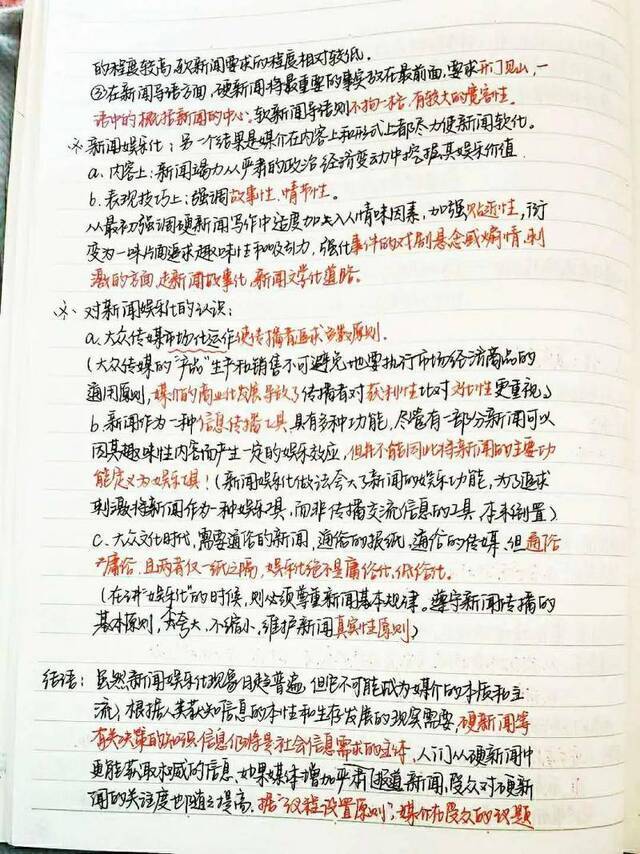 的程度较高,软新闻要求的程度相对较低。
③在新闻导语方面,硬新闻将最重要的事实放在最前面,要求开门见山,一
语中的概括新闻的中心;软新闻导语则不拘一格,有较大的宽容性。
※ 新闻娱乐化:另一个结果是媒介在内容上和形式上都尽力使新闻软化。
a.内容上:新闻竭力从严肃的政治经济变动中挖掘其娱乐价值.
b.表现技巧上:强调故事性、情节性。
从最初强调硬新闻写作中适度加入人情味因素,加强贴近性,衍
变为一味片面追求趣味性和吸引力,强化事件的戏剧悬念或煽情、刺
激的方面,走新闻故事化、新闻文学化道路。
※ 对新闻娱乐化的认识:
a.大众传媒市场化运作使传播者追求多数原则.
(大众传媒的“产品”生产和销售不可避免地要执行市场经济商品的
通用原则,媒介的商业化发展导致了传播者对获利性比对文化性更重视)
b.新闻作为一种信息传播工具,具有多种功能,尽管有一部分新闻可以
因其趣味性内容而产生一定的娱乐效应,但并不能因此将新闻的主要功
能定义为娱乐工具!(新闻娱乐化做法夸大了新闻的娱乐功能,为了追求
刺激将新闻作为一种娱乐工具,而非传播交流信息的工具,本末倒置)
c.大众文化时代,需要通俗的新闻,通俗的报纸,通俗的传媒,但通俗
≠庸俗,且两者仅一纸之隔,娱乐化绝不是庸俗化、低俗化。
(在讲“娱乐化”的时候,则必须尊重新闻基本规律。遵守新闻传播的
基本原则,不夸大,不缩小,维护新闻真实性原则)
结语:虽然新闻娱乐化现象日趋普遍,但它不可能成为媒介的本质和主
流;根据人类获知信息的本性和生存发展的现实需要,硬新闻等
有关决策的知识信息仍将是社会信息需求的主体,人们从硬新闻中
更能获取权威的信息.如果媒体增加严肃报道新闻,受众对硬新
闻的关注度也随之提高.据“议程设置原则”,媒介在受众的议题